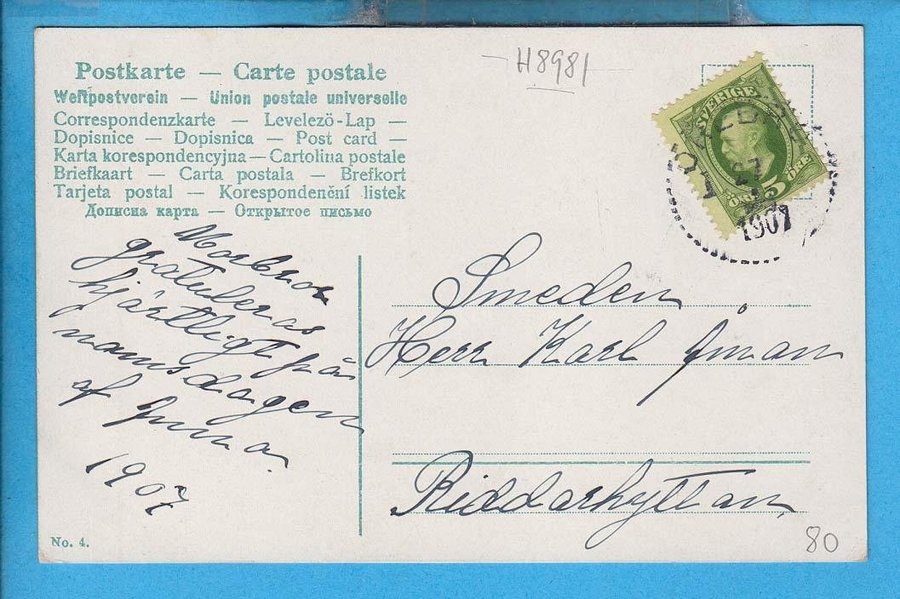 Postkarte — Carte postale
Weltpostverein — Union postale universelle
Correspondenzkarte — Levelező-Lap —
Dopisnice — Dopisnica — Post card —
Karta korespondencyjna — Cartolina postale
Briefkaart — Carta postala — Brefkort
Tarjeta postal — Korespondenční listek
Дописна карта — Открытое письмо
H8981
SVERIGE
5
ÖRE
27
1907
Morbror
gratuleras
hjärtligt på
namnsdagen
af Gunna.
1907
Smeden
Herr Karl
Riddarhyttan
No. 4.
80